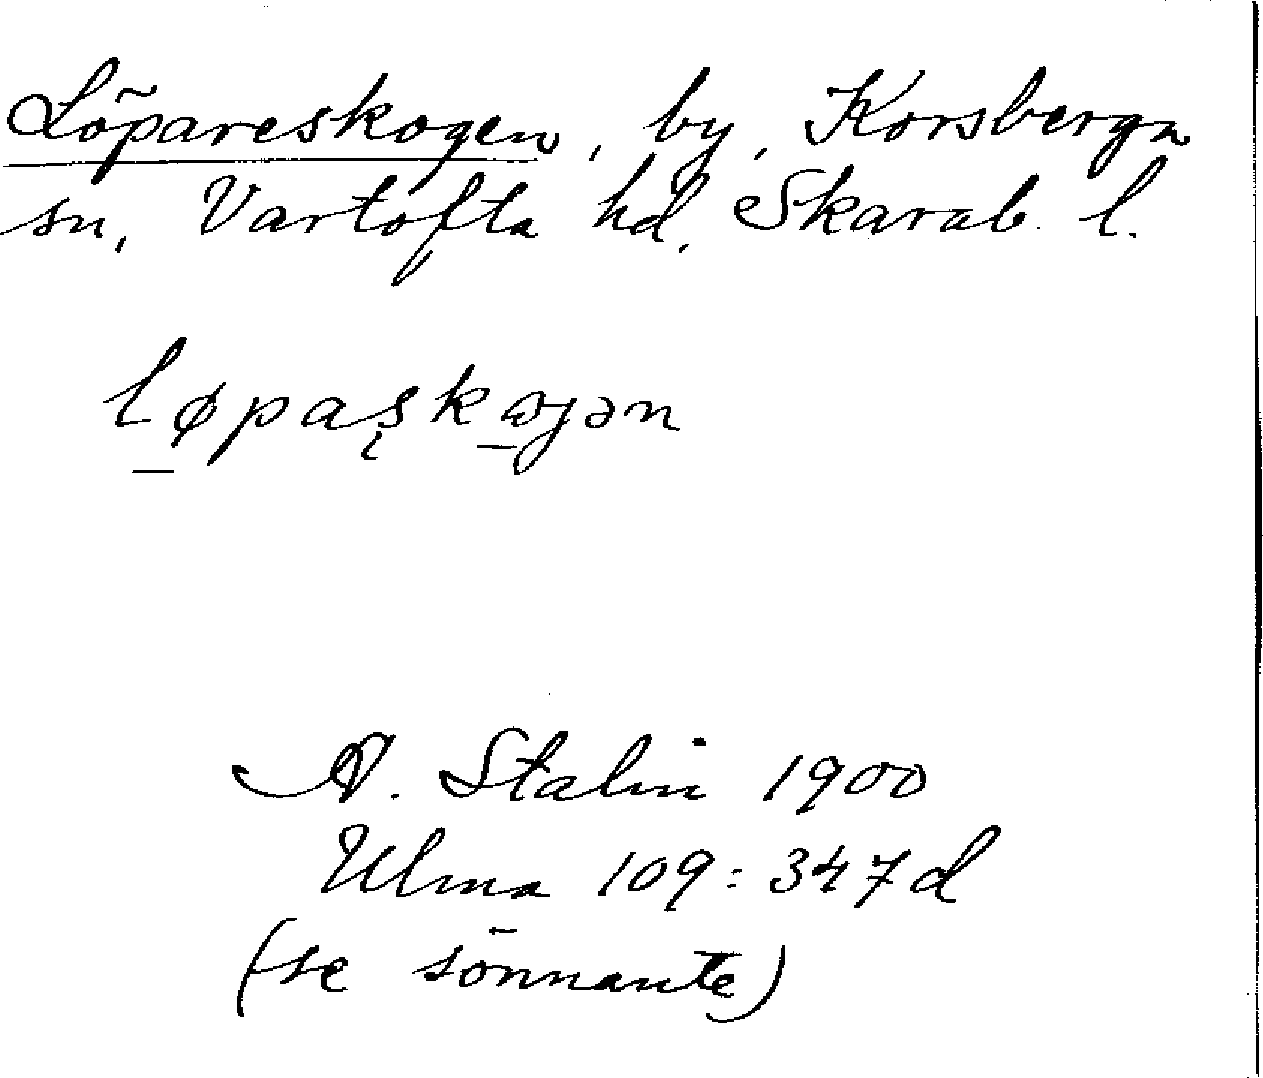 Löpareskogen, by, Korsberga
sn, Vartofta hd, Skarab. l.
løpaşkɷjən
A. Stalin 1900
Ulma 109:347d
(se sönnante)